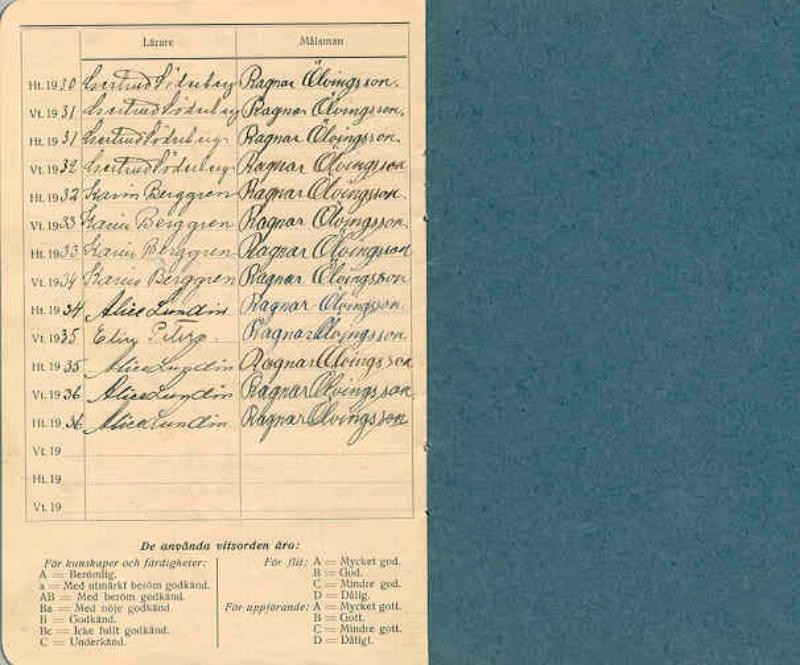 Lärare Målsman
Ht. 1930 Gertrud Söderberg Ragnar Ölvingsson.
Vt. 1931 Gertrud Söderberg Ragnar Ölvingsson.
Ht. 1931 Gertrud Söderberg Ragnar Ölvingsson.
Vt. 1932 Gertrud Söderberg Ragnar Ölvingsson
Ht. 1932 Karin Berggren Ragnar Ölvingsson.
Vt. 1933 Karin Berggren Ragnar Ölvingsson.
Ht. 1933 Karin Berggren Ragnar Ölvingsson
Vt. 1934 Karin Berggren Ragnar Ölvingsson
Ht. 1934 Alice Lundin Ragnar Ölvingsson.
Vt. 1935 Ragnar Ölvingsson.
Ht. 1935 Alice Lundin Ragnar Ölvingsson
Vt. 1936 Alice Lundin Ragnar Ölvingsson
Ht. 1936 Alice Lundin Ragnar Ölvingsson
Vt. 19
Ht. 19
Vt. 19
De använda vitsorden äro:
För kunskaper och färdigheter:
A = Berömlig.
a = Med utmärkt beröm godkänd.
AB = Med beröm godkänd.
Ba = Med nöje godkänd
B = Godkänd.
Bc = Icke fullt godkänd.
C = Underkänd.
För flit: A = Mycket god.
B = God.
C = Mindre god.
D = Dålig.
För uppförande: A = Mycket gott.
B = Gott.
C = Mindre gott.
D = Dåligt.